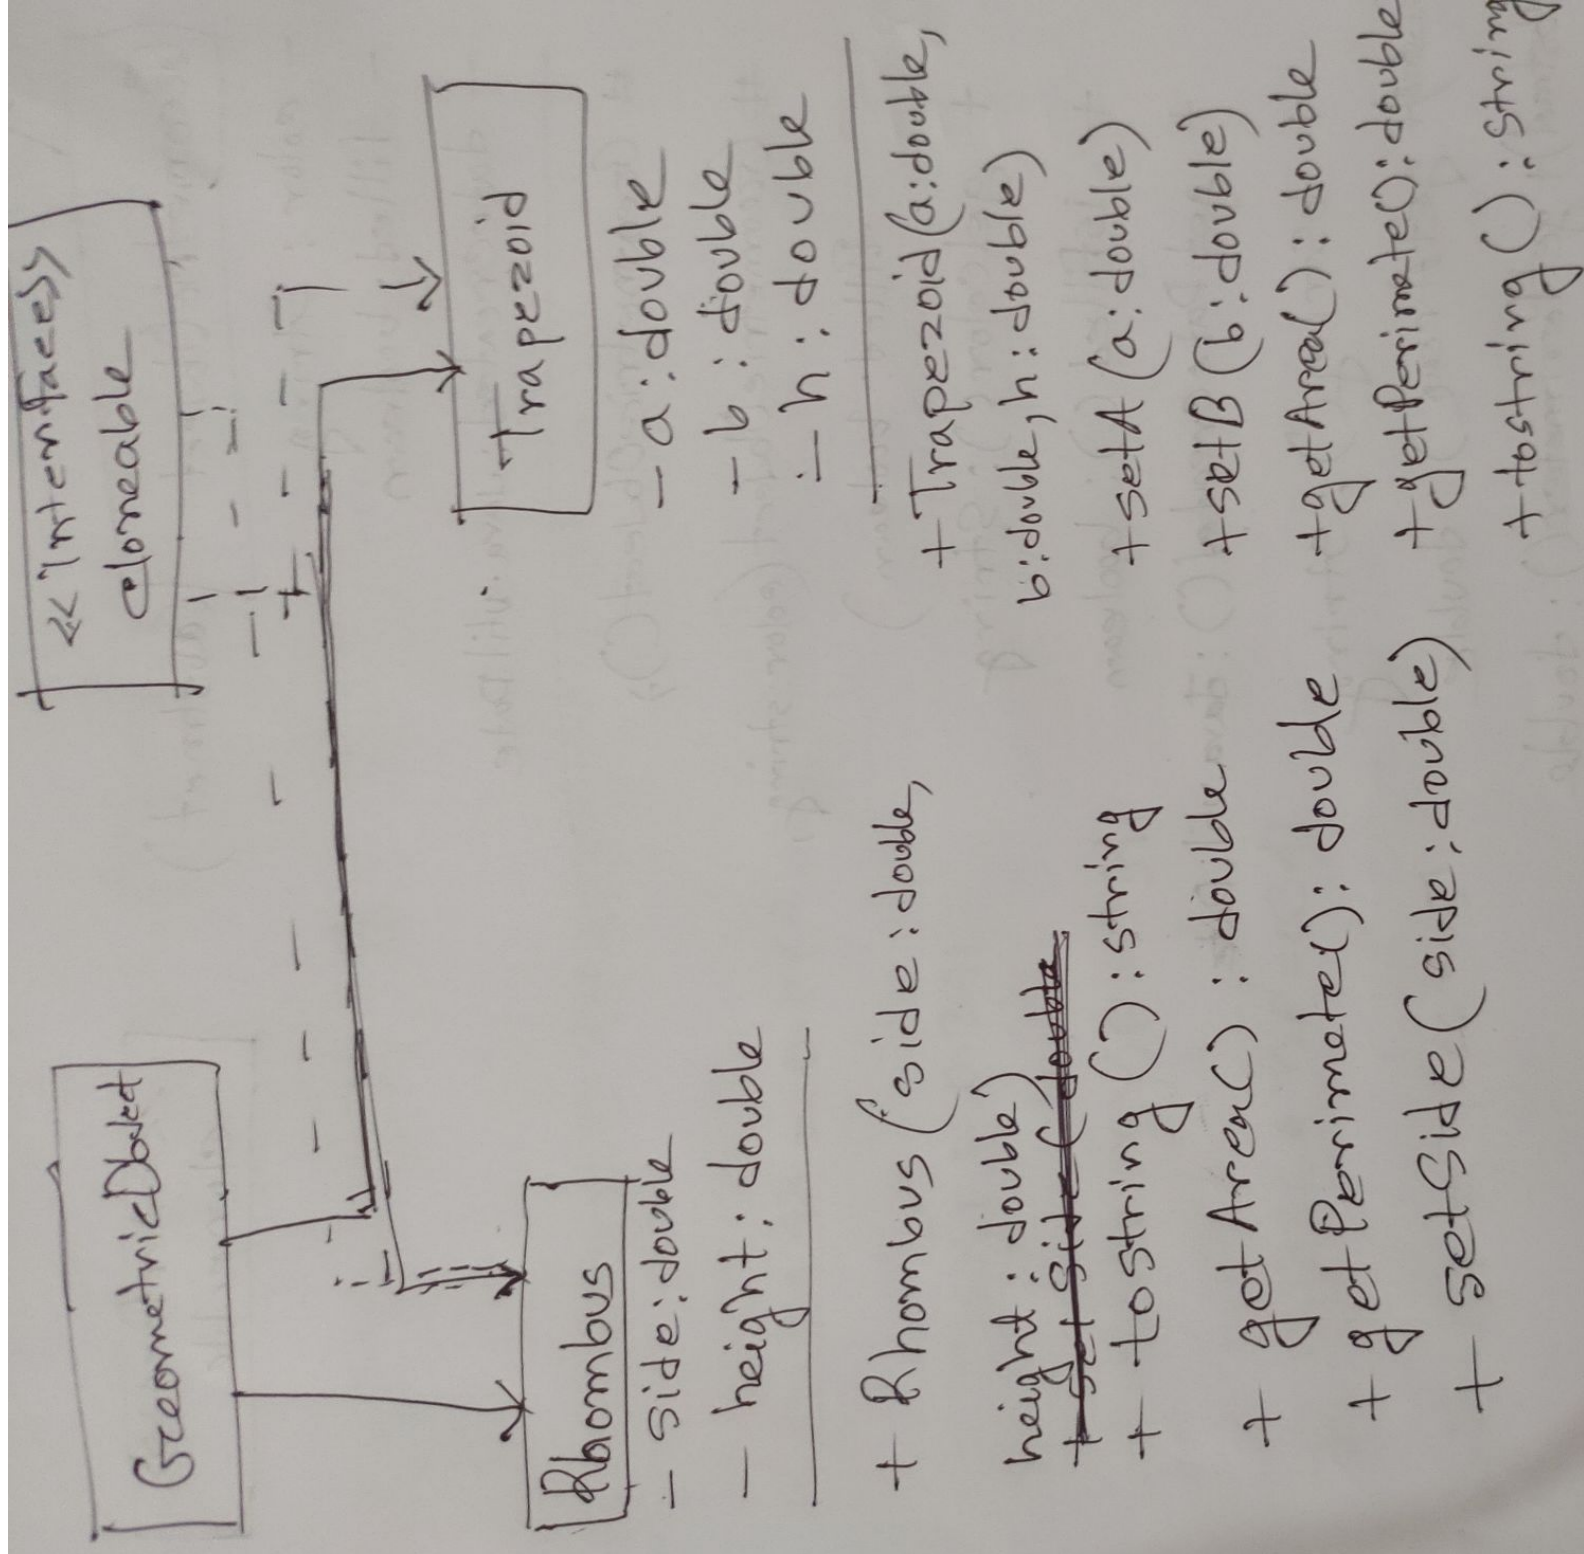 GeometricObject
<<interface>>
cloneable
Rhombus
- side: double
- height: double
+ Rhombus (side: double,
height: double)
+ tostring () : string
+ getArea() : double
+ getPerimeter(): double
+ setSide (side: double)
Trapezoid
- a: double
- b: double
- h: double
+ Trapezoid (a: double,
b: double, h: double)
+ setA (a: double)
+ setB (b: double)
+ getArea() : double
+ getPerimete(): double
+ tostring () : string